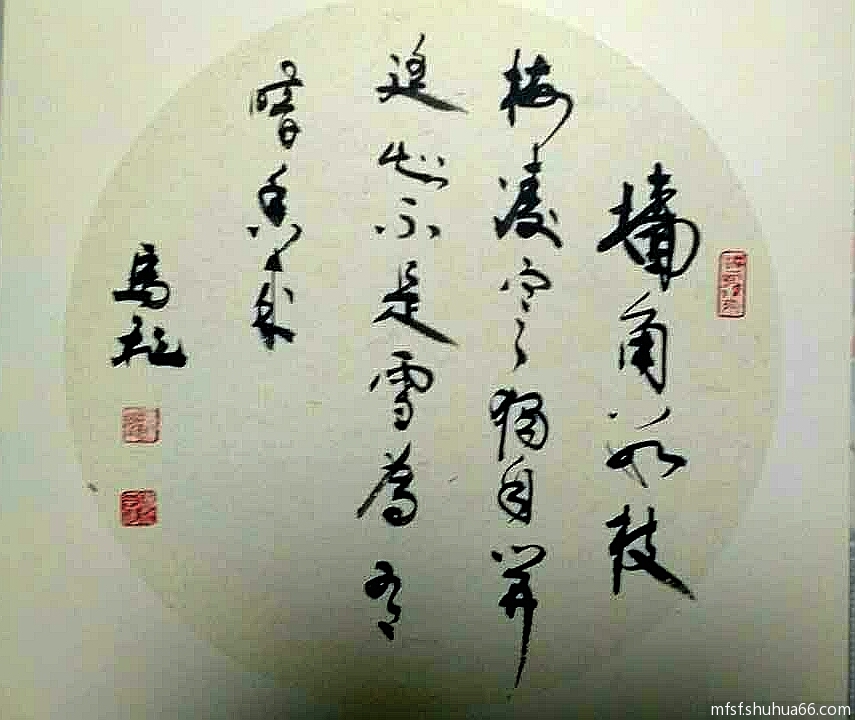 墙角数枝
梅凌寒獨自開
遥知不是雪為有
暗香来
馬
mfsfshuhua66.com